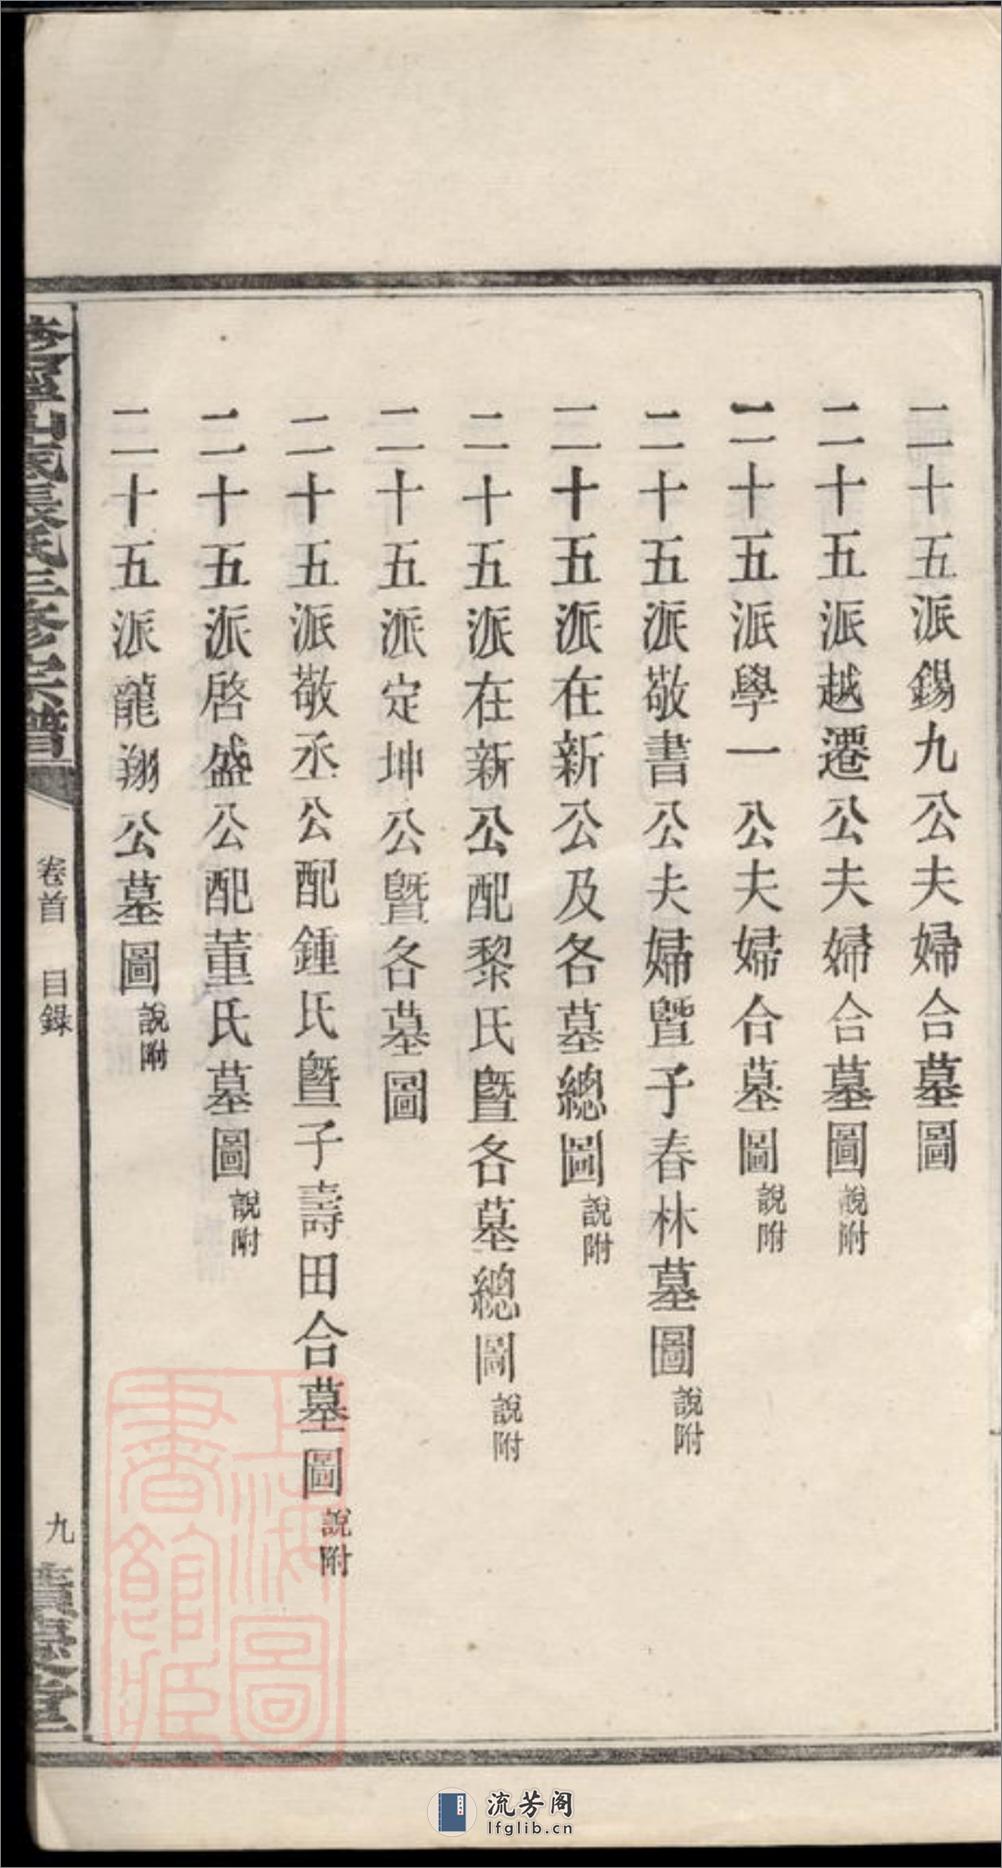 二十五派錫九公夫婦合墓圖
二十五派越遷公夫婦合墓圖說附
二十五派學一公夫婦合墓圖說附
二十五派敬書公夫婦暨子春林墓圖說附
二十五派在新公及各墓總圖說附
二十五派在新公配黎氏暨各墓總圖說附
二十五派定坤公暨各墓圖
二十五派敬丞公配鍾氏暨子壽田合墓圖說附
二十五派啓盛公配董氏墓圖說附
二十五派龍翔公墓圖說附
氏三修宗譜
卷首 目錄
九
堂
上海圖書館藏
流芳阁
lfglib.cn